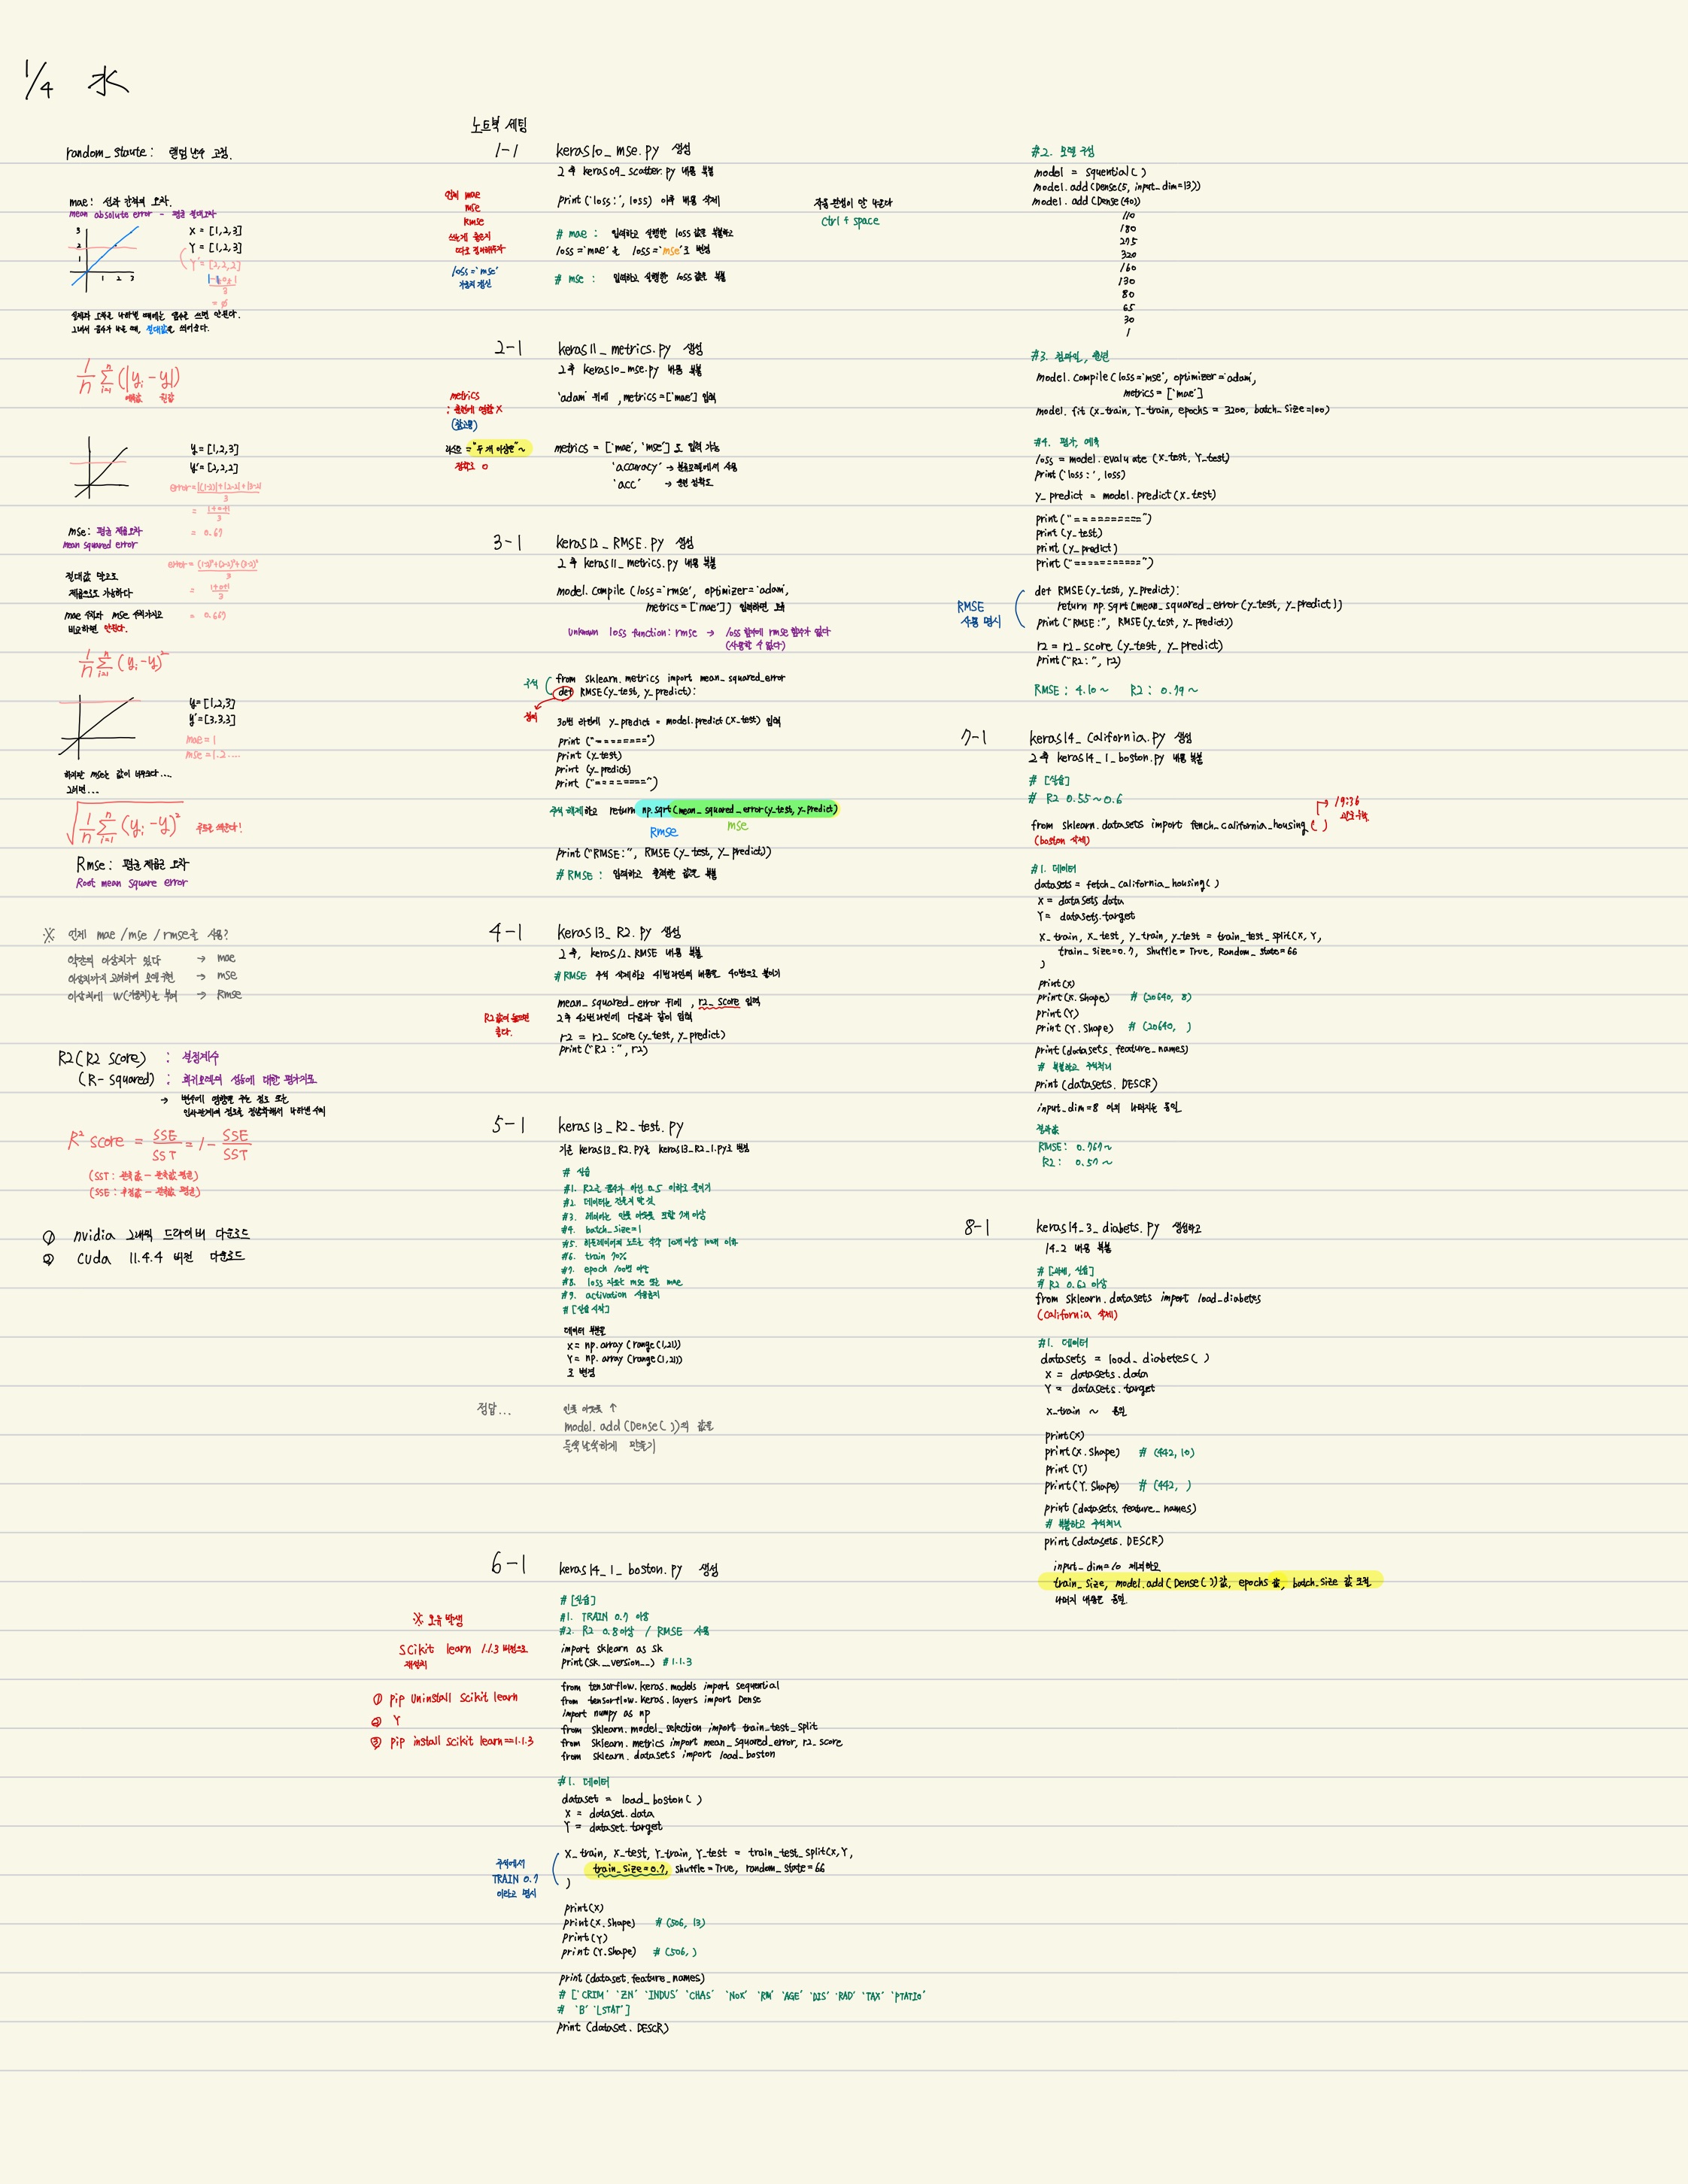 1/4 水
random_staute : 랜덤 난수 고정.
mae : 선과 간격의 오차.
mean absolute error - 평균 절대오차
3
2
1
1 2 3
x = [1,2,3]
Y = [1,2,3]
Y' = [2,2,2]
= ø
그래서 음수가 나올 때, 절대값을 씌어준다.
1/n Σ(i=1, n) (|yi - y|)
예측값 원값
y = [1,2,3]
y' = [2,2,2]
error = |(1-2)|+|2-2|+|3-2| / 3
= 1+0+1 / 3
= 0.67
mse : 평균 제곱오차
mean squared error
error = (1-2)²+(2-2)²+(3-2)² / 3
= 1+0+1 / 3
= 0.667
절대값 말고도
제곱으로도 가능하다
mae 수치와 mse 수치가지고
비교하면 안된다.
1/n Σ(i=1, n) (yi - y)²
y = [1,2,3]
y' = [3,3,3]
mae = 1
mse = 1.2....
하지만 mse는 값이 너무크다...
그러면...
√ 1/n Σ(i=1, n) (yi - y)² 루트를 씌운다!
Rmse : 평균 제곱근 오차
Root mean square error
※ 언제 mae / mse / rmse를 사용?
약간의 이상치가 있다 → mae
이상치까지 고려하여 모델구현 → mse
이상치에 W(가중치)를 부여 → Rmse
R2 ( R2 score ) : 결정계수
( R - squared ) : 회귀모델의 성능에 대한 평가지표
→ 변수에 영향을 주는 정도 또는
인과관계의 정도를 정량화해서 나타낸 수치
R² score = SSE / SST = 1 - SSE / SST
(SST : 관측값 - 관측값 평균)
(SSE : 추정값 - 관측값 평균)
① nvidia 그래픽 드라이버 다운로드
② cuda 11.4.4 버전 다운로드
노트북 세팅
1-1 keras10_mse.py 생성
2 후 keras09_scatter.py 내용 복붙
언제 mae
mse
Rmse
쓰는게 좋은지
따로 정리해두자
loss = 'mse'
가중치 갱신
print('loss:', loss) 이후 내용 삭제
# mae : 입력하고 실행한 loss 값을 복붙하고
loss = 'mae'를 loss = 'mse'로 변경
# mse : 입력하고 실행한 loss 값을 복붙
자동완성이 안 나온다
Ctrl + space
2-1 keras11_metrics.py 생성
2 후 keras10_mse.py 내용 복붙
metrics
: 훈련에 영향 X
(참고용)
'adam' 뒤에 , metrics = ['mae'] 입력
리스트 = "두 개 이상은" ~
metrics = ['mae', 'mse'] 도 입력 가능
'accuracy' → 분류모델에서 사용
'acc' → 훈련 정확도
3-1 keras12_RMSE.py 생성
2 후 keras11_metrics.py 내용 복붙
model.compile (loss = 'rmse', optimizer = 'adam',
metrics = ['mae']) 입력하면 오류
Unknown loss function: rmse → loss 함수에 rmse 함수가 없다
(사용할 수 없다)
주석
from sklearn.metrics import mean_squared_error
def RMSE(y_test, y_predict):
정의
30번 라인에 y_predict = model.predict (x_test) 입력
print ("========")
print (y_test)
print (y_predict)
print ("========")
주석 해제하고 return np.sqrt (mean_squared_error (y_test, y_predict)
Rmse mse
print ("RMSE:", RMSE (y_test, y_predict))
# RMSE : 입력하고 출력한 값을 복붙
4-1 keras13_R2.py 생성
2 후, keras12_RMSE 내용 복붙
# RMSE 주석 삭제하고 41번라인의 내용을 40번으로 붙이기
R2값이 높으면
좋다.
mean_squared_error 뒤에 , r2_score 입력
2후 42번라인에 다음과 같이 입력
r2 = r2_score (y_test, y_predict)
print("R2 :", r2)
5-1 keras13_R2_test.py
기존 keras13_R2.py를 keras13_R2_1.py로 변경
# 실습
#1. R2를 음수가 아닌 0.5 이하로 줄이기
#2. 데이터는 건들지 말 것
#3. 레이어는 인풋 아웃풋 포함 7개 이상
#4. batch_size=1
#5. 히든레이어의 노드는 각각 10개 이상 100개 이하
#6. train 70%
#7. epoch 100번 이상
#8. loss 지표는 mse 또는 mae
#9. activation 사용금지
# [실습 시작]
데이터 부분을
x = np.array (range(1,21))
Y = np.array (range(1,21))
로 변경
정답... 인풋 아웃풋 ↑
model.add (Dense( ))의 값을
들쑥날쑥하게 만들기
6-1 keras14_1_boston.py 생성
※ 오류 발생
Scikit learn 1.1.3 버전으로
재설치
① pip uninstall scikit learn
② Y
③ pip install scikit learn==1.1.3
# [실습]
#1. TRAIN 0.7 이상
#2. R2 0.8이상 / RMSE 사용
import sklearn as sk
print(sk.__version__) # 1.1.3
from tensorflow.keras.models import sequential
from tensorflow.keras.layers import Dense
import numpy as np
from sklearn.model_selection import train_test_split
from sklearn.metrics import mean_squared_error, r2_score
from sklearn.datasets import load_boston
#1. 데이터
dataset = load_boston( )
X = dataset.data
Y = dataset.target
주석에서
TRAIN 0.7
이라고 명시
X_train, X_test, Y_train, Y_test = train_test_split(X, Y,
train_size=0.7, shuffle = True, random_state = 66
)
print(x)
print(x.shape) # (506, 13)
print(Y)
print (Y.shape) # (506, )
print (dataset.feature_names)
# ['CRIM' 'ZN' 'INDUS' 'CHAS' 'NOX' 'RM' 'AGE' 'DIS' 'RAD' 'TAX' 'PTATIO'
# 'B' 'LSTAT']
print (dataset. DESCR)
#2. 모델 구성
model = squential( )
model.add (Dense(5, input_dim=13))
model.add (Dense (40))
110
180
275
320
160
130
80
65
30
1
#3. 컴파일, 훈련
model.compile (loss = 'mse', optimizer = 'adam',
metrics = ['mae']
model.fit (x_train, Y_train, epochs = 3200, batch_size=100)
#4. 평가, 예측
loss = model.evaluate (x_test, Y_test)
print('loss:', loss)
y_predict = model.predict (x_test)
print ("==========")
print (y_test)
print (y_predict)
print ("===========")
RMSE
사용 명시
def RMSE (y_test, y_predict):
return np.sqrt (mean_squared_error (y_test, y_predict))
print ("RMSE:", RMSE(y_test, y_predict))
r2 = r2_score (y_test, y_predict)
print("R2:", r2)
RMSE : 4.10 ~ R2 : 0.79 ~
7-1 keras14_california.py 생성
2후 keras14_1_boston.py 내용 복붙
# [실습]
# R2 0.55~0.6
→ 19:36
from sklearn.datasets import fench_california_housing ( )
(boston 삭제)
#1. 데이터
datasets = fetch_california_housing( )
X = datasets data
Y = datasets.target
X_train, X_test, Y_train, y_test = train_test_split (X, Y,
train_size=0.7, shuffle = True, Random_state = 66
)
print(x)
print(x.shape) # (20640, 8)
print(Y)
print (Y.shape) # (20640, )
print (datasets.feature_names)
# 복붙하고 주석처리
print (datasets. DESCR)
input_dim=8 이외 나머지는 동일
결과값
RMSE : 0.767~
R2 : 0.57 ~
8-1 keras14_3_diabets.py 생성하고
14.2 내용 복붙
# [과제, 실습]
# R2 0.62 이상
from sklearn.datasets import load_diabetes
(california 삭제)
#1. 데이터
datasets = load_diabetes( )
X = datasets.data
Y = datasets.target
x_train ~ 동일
print(x)
print (x.shape) # (442, 10)
print (Y)
print (Y.shape) # (442, )
print (datasets.feature_names)
# 복붙하고 주석처리
print (datasets. DESCR)
input_dim=10 제외하고
train_size, model.add (Dense( ))값, epochs 값, batch.size 값 조절
나머지 내용은 동일